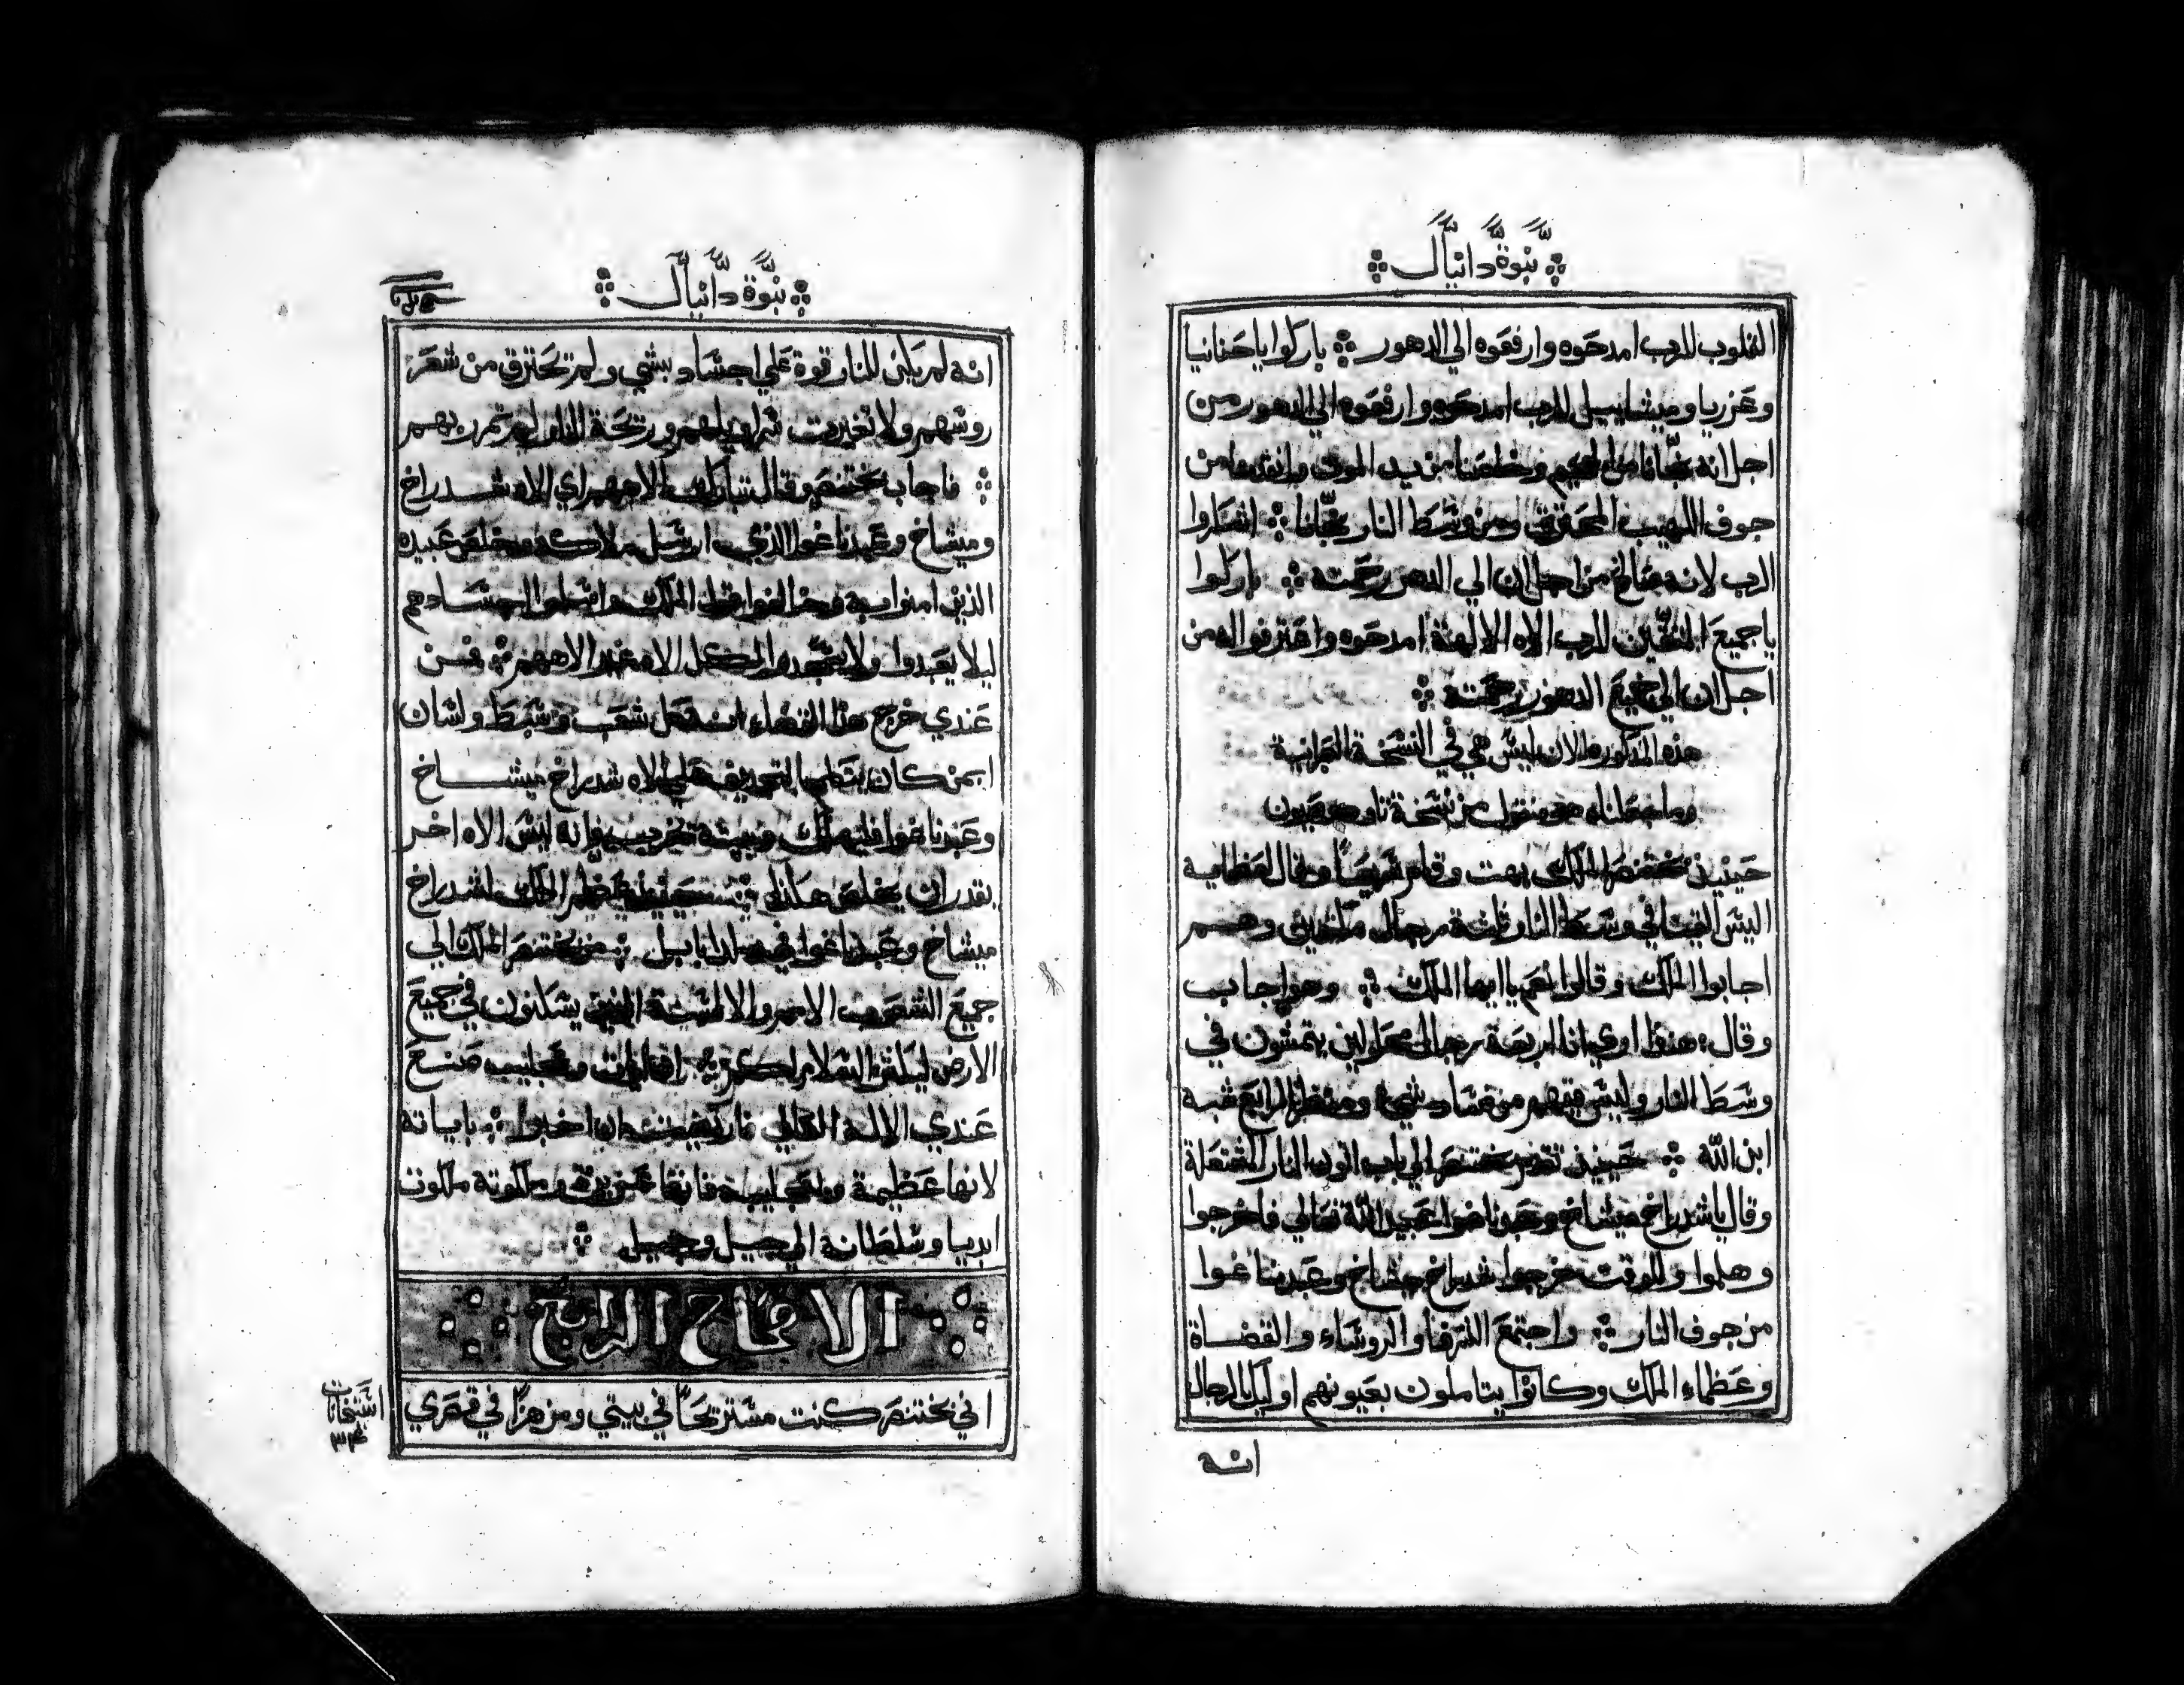 نبوة دانيال
القلوب للرب امدحوه وارفعوه الي الدهور باركوا يا حنانيا
وعزريا وميشاييل للرب امدحوه وارفعوه الي الدهور من
اجل انه نجانا من الجحيم وخلصنا من يد الموت وانقذنا من
جوف اللهيب المحترق ومن وسط النار نجانا اشكروا
الرب لانه صالح من اجل ان الي الدهر رحمته باركوا
يا جميع المتقين للرب الاه الالهة امدحوه واعترفوا له من
اجل ان الي جميع الدهور رحمته
هذه المذكوره الان ليس هي في النسخة العبرانية
وما جعلناه هو منقول من نسخة تاودوصيون
حينيذ بختنصر الملك بهت وقام سريعا وقال لعظمايه
اليس القينا في وسط النار ثلثة رجال مكتفين وهم
اجابوا الملك وقالوا نعم يا ايها الملك وهو اجاب
وقال هنوذا اري انا اربعة رجال محلولين يتمشون في
وسط النار وليس فيهم من فساد شي ومنظر الرابع شبه
ابن الله حينيذ تقدم بختنصر الي باب اتون النار المشتعلة
وقال يا شدراخ ميشاخ وعبدناغوا عبيد الله تعالي فاخرجوا
وهلموا وللوقت خرجوا شدراخ ميشاخ وعبدناغوا
من جوف النار واجتمع الشرفا والروساء والقضاة
وعظماء الملك وكانوا يتاملون بعيونهم اوليك الرجال
انه
نبوة دانيال
انه لم يكن للنار قوة علي اجساد بشي ولم تحترق من شعر
روسهم ولا تغيرت سراويلهم وريحة النار لم تمر بهم
فاجاب بختنصر وقال تبارك الاههم اي الاه شدراخ
وميشاخ وعبدناغوا الذي ارسل ملاكه وخلص عبيده
الذين امنوا به وخالفوا قول الملك واسلموا اجسادهم
ليلا يعبدوا ولا يسجدوا لكل الاه غير الاههم فمن
عندي خرج هذا القضاء ان كل شعب وسبط ولسان
ايمن كان يتكلم التجديف علي الاه شدراخ ميشاخ
وعبدناغوا فليهلك وبيته يخرب فانه ليس الاه اخر
يقدر ان يخلص هكذا حينيذ عظم الملك لشدراخ
ميشاخ وعبدناغوا في بلد بابل من بختنصر الملك الي
جميع الشعوب الامم والالسنة الذين يسكنون في جميع
الارض ليكثر السلام لكم ايات وعجايب صنع
عندي الاله العالي فارتضيت ان اخبر باياته
لانها عظيمة وعجايبه فانها عزيزة ملكوته ملكوت
ابديا وسلطانه الي جيل وجيل
الافتتاح الرابع
اني بختنصر كنت مستريحا في بيتي ومزهرا في قصري